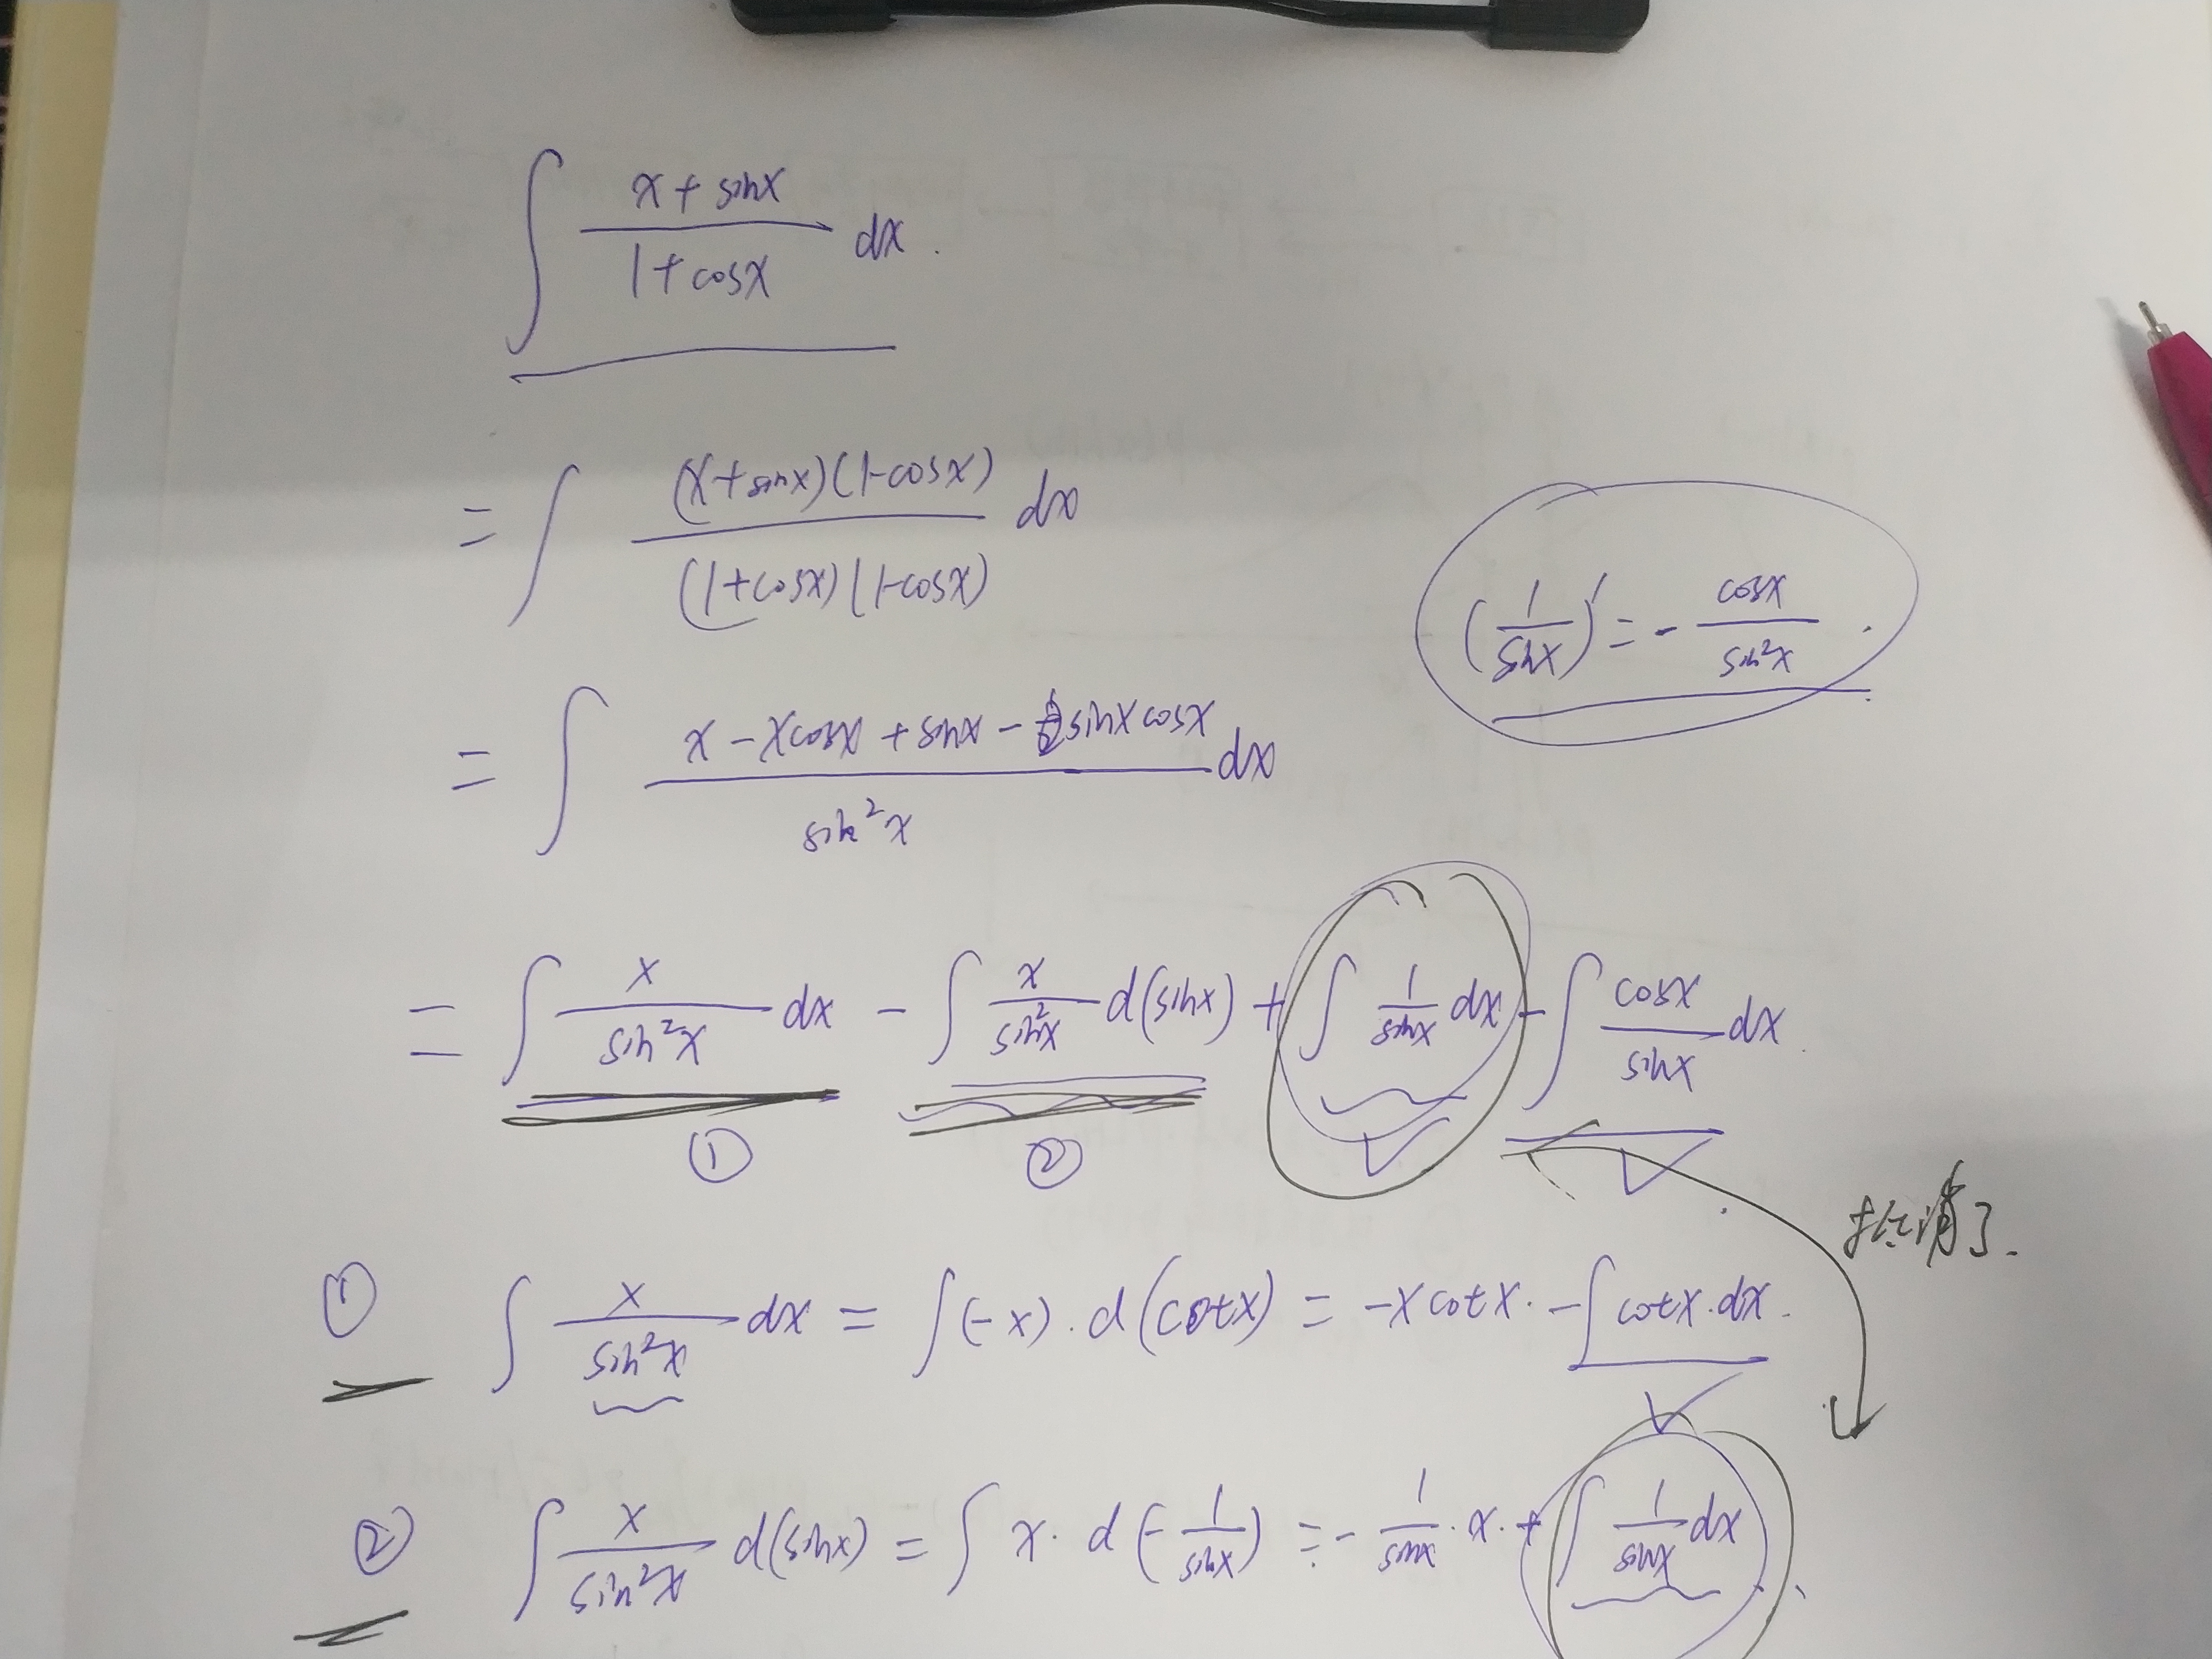 ∫ (x + sinx)/(1 + cosx) dx.
= ∫ (x+sinx)(1-cosx)/(1+cosx)(1-cosx) dx
(1/sinx)' = - cosx/sin²x .
= ∫ (x - xcosx + sinx - sinxcosx)/sin²x dx
= ∫ x/sin²x dx - ∫ x/sin²x d(sinx) + ∫ 1/sinx dx - ∫ cosx/sinx dx.
① ②
抵消了.
① ∫ x/sin²x dx = ∫(-x)·d(cotx) = -xcotx·-∫cotx·dx.
② ∫ x/sin²x d(sinx) = ∫ x· d(-1/sinx) = - 1/sinx ·x·+∫ 1/sinx dx